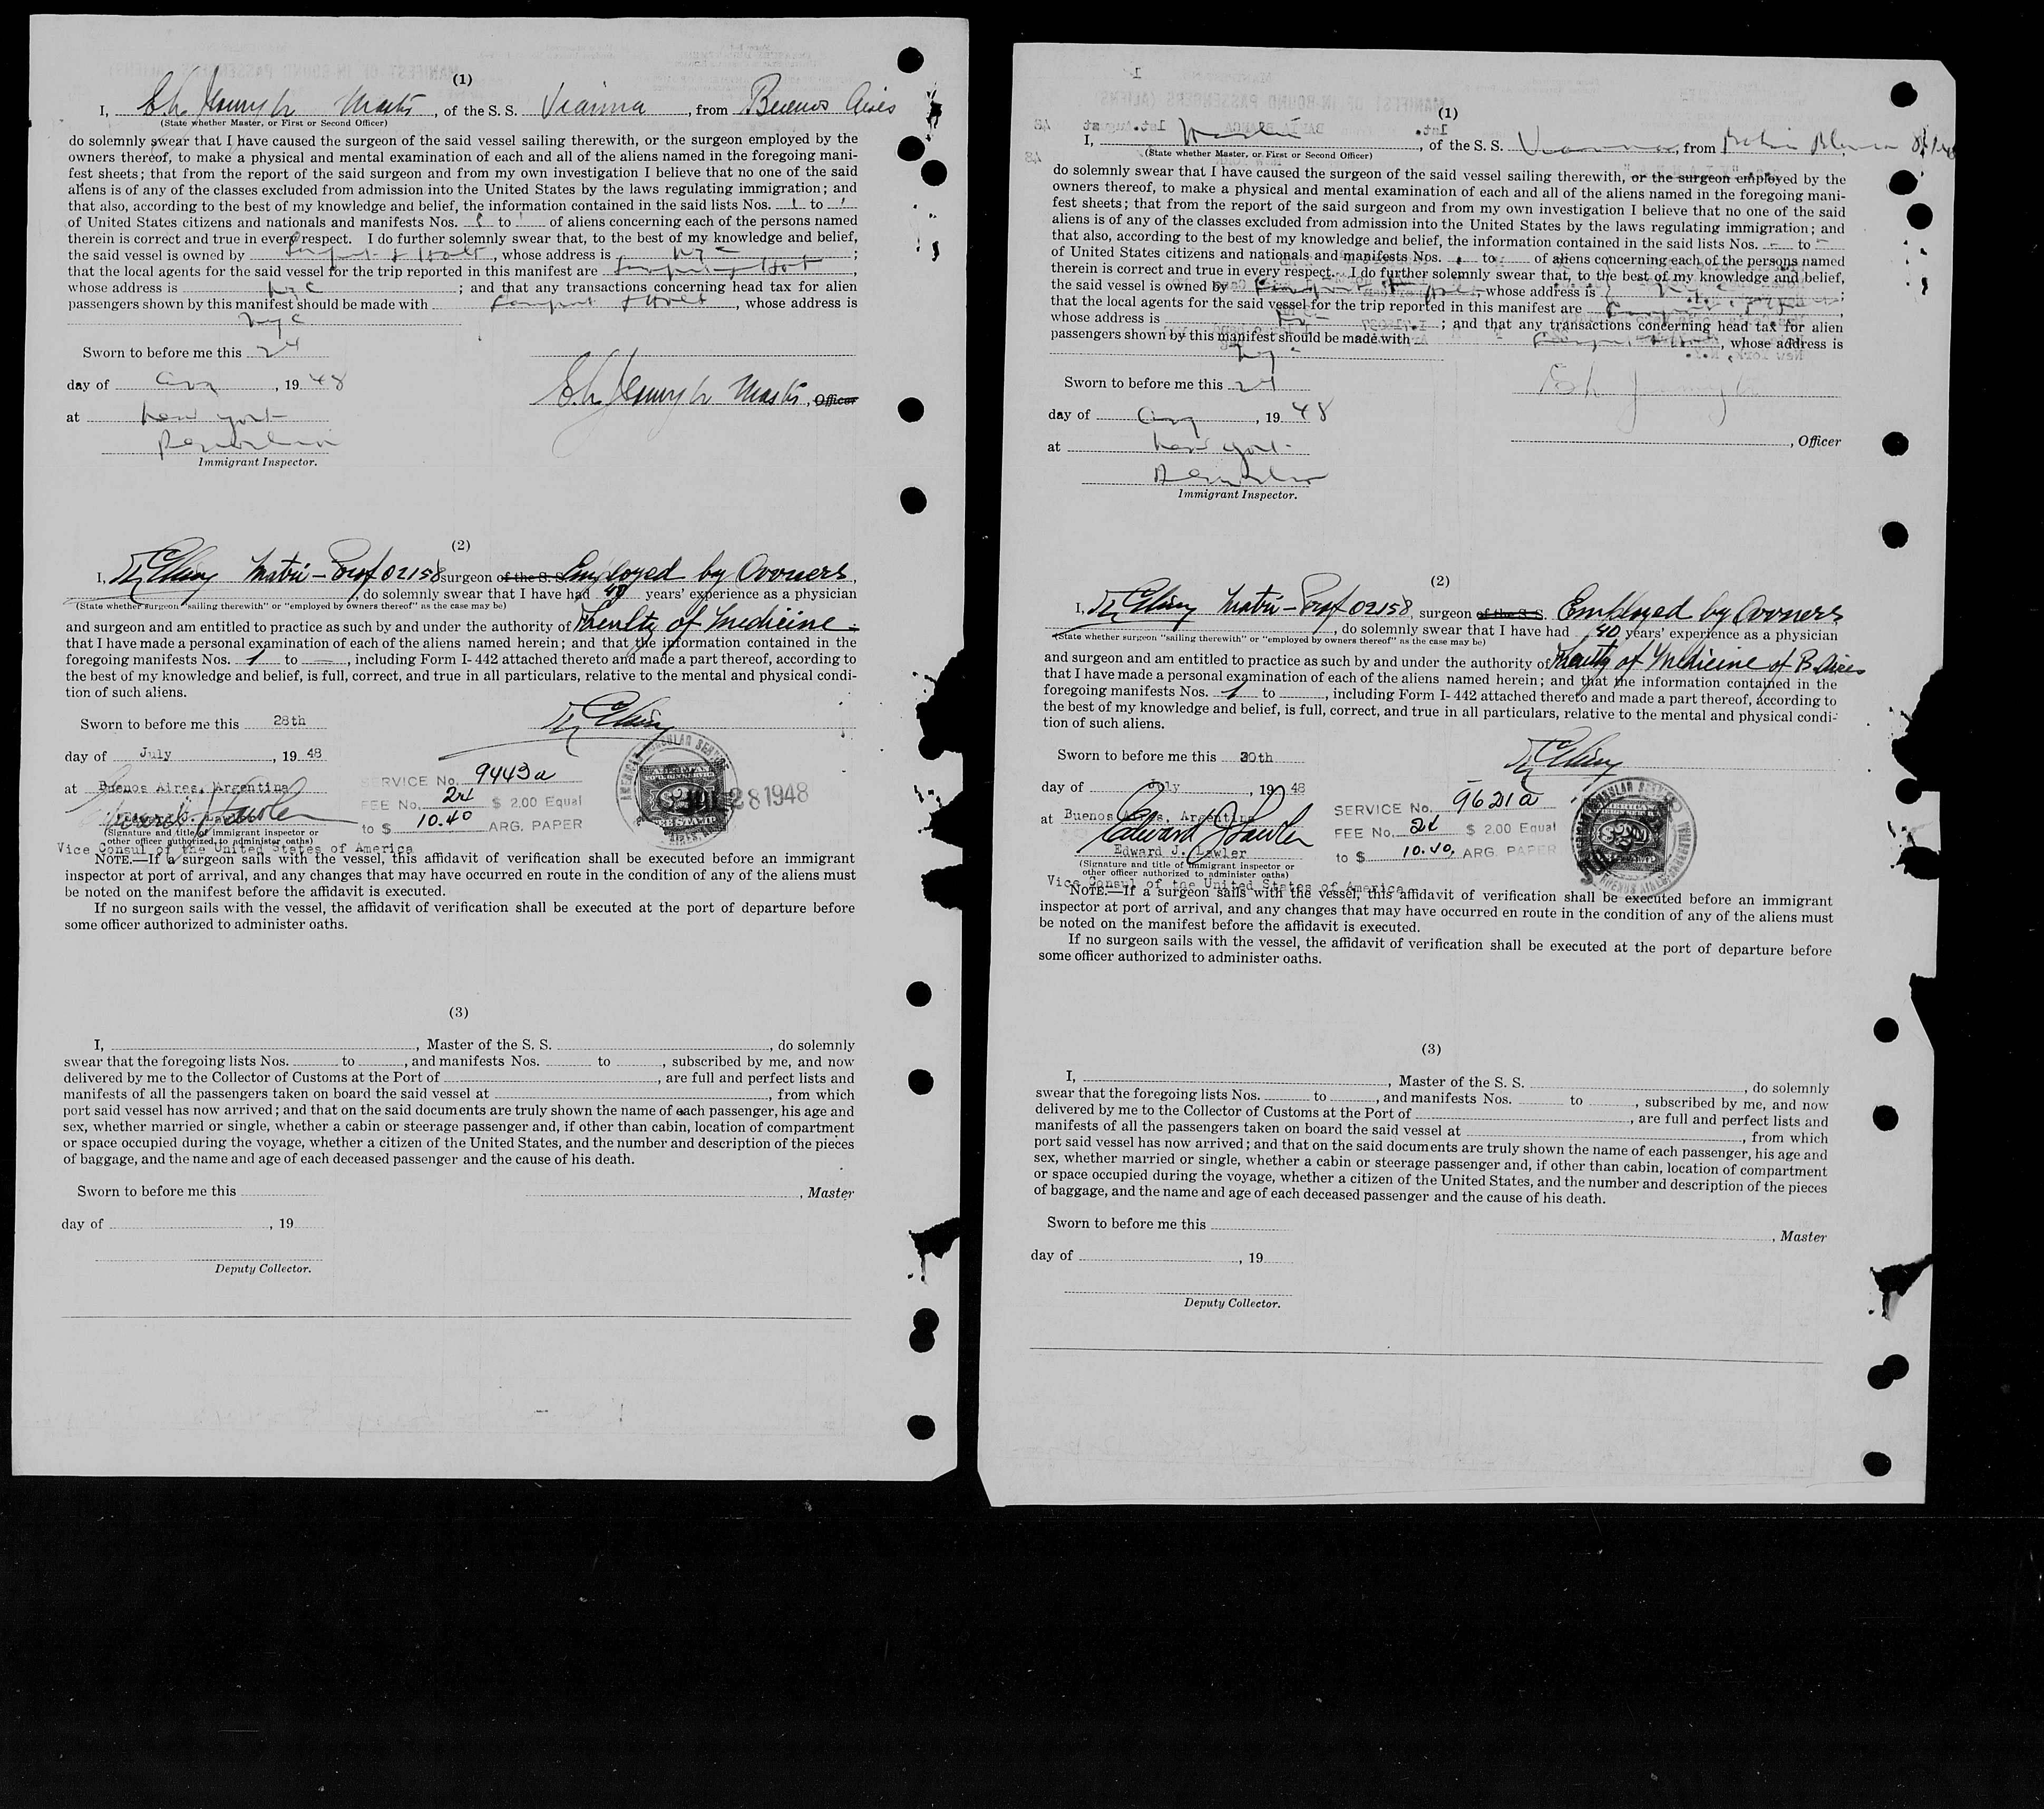 (1)
I, Master, of the S. S. Vianna, from Buenos Aires
(State whether Master, or First or Second Officer)
do solemnly swear that I have caused the surgeon of the said vessel sailing therewith, or the surgeon employed by the
owners thereof, to make a physical and mental examination of each and all of the aliens named in the foregoing mani-
fest sheets; that from the report of the said surgeon and from my own investigation I believe that no one of the said
aliens is of any of the classes excluded from admission into the United States by the laws regulating immigration; and
that also, according to the best of my knowledge and belief, the information contained in the said lists Nos. 1 to
of United States citizens and nationals and manifests Nos. to of aliens concerning each of the persons named
therein is correct and true in every respect. I do further solemnly swear that, to the best of my knowledge and belief,
the said vessel is owned by Lamport & Holt, whose address is NYC;
that the local agents for the said vessel for the trip reported in this manifest are Lamport & Holt,
whose address is NYC; and that any transactions concerning head tax for alien
passengers shown by this manifest should be made with Lamport & Holt, whose address is
NYC
Sworn to before me this 24
day of Aug, 19 48
Master, Officer
at New York
Immigrant Inspector.
(2)
I, Matri-Prof 02158 surgeon of the S. S. Employed by Owners,
, do solemnly swear that I have had 40 years' experience as a physician
(State whether surgeon "sailing therewith" or "employed by owners thereof" as the case may be)
and surgeon and am entitled to practice as such by and under the authority of Faculty of Medicine
that I have made a personal examination of each of the aliens named herein; and that the information contained in the
foregoing manifests Nos. 1 to —, including Form I-442 attached thereto and made a part thereof, according to
the best of my knowledge and belief, is full, correct, and true in all particulars, relative to the mental and physical condi-
tion of such aliens.
Sworn to before me this 28th
day of July, 19 48
at Buenos Aires, Argentina
SERVICE No. 9443a
FEE No. 24 $ 2.00 Equal
to $ 10.40 ARG. PAPER
AMERICAN CONSULAR SERVICE
JUL 28 1948
(Signature and title of immigrant inspector or
other officer authorized to administer oaths)
Vice Consul of the United States of America
NOTE.—If a surgeon sails with the vessel, this affidavit of verification shall be executed before an immigrant
inspector at port of arrival, and any changes that may have occurred en route in the condition of any of the aliens must
be noted on the manifest before the affidavit is executed.
If no surgeon sails with the vessel, the affidavit of verification shall be executed at the port of departure before
some officer authorized to administer oaths.
(3)
I, , Master of the S. S. , do solemnly
swear that the foregoing lists Nos. to , and manifests Nos. to , subscribed by me, and now
delivered by me to the Collector of Customs at the Port of , are full and perfect lists and
manifests of all the passengers taken on board the said vessel at , from which
port said vessel has now arrived; and that on the said documents are truly shown the name of each passenger, his age and
sex, whether married or single, whether a cabin or steerage passenger and, if other than cabin, location of compartment
or space occupied during the voyage, whether a citizen of the United States, and the number and description of the pieces
of baggage, and the name and age of each deceased passenger and the cause of his death.
Sworn to before me this
, Master
day of , 19
Deputy Collector.
(1)
I, Master, of the S. S. Vianna, from Bahia Blanca
(State whether Master, or First or Second Officer)
do solemnly swear that I have caused the surgeon of the said vessel sailing therewith, or the surgeon employed by the
owners thereof, to make a physical and mental examination of each and all of the aliens named in the foregoing mani-
fest sheets; that from the report of the said surgeon and from my own investigation I believe that no one of the said
aliens is of any of the classes excluded from admission into the United States by the laws regulating immigration; and
that also, according to the best of my knowledge and belief, the information contained in the said lists Nos. - to -
of United States citizens and nationals and manifests Nos. to of aliens concerning each of the persons named
therein is correct and true in every respect. I do further solemnly swear that, to the best of my knowledge and belief,
the said vessel is owned by Lamport & Holt, whose address is NYC;
that the local agents for the said vessel for the trip reported in this manifest are Lamport & Holt,
whose address is NYC; and that any transactions concerning head tax for alien
passengers shown by this manifest should be made with Lamport & Holt, whose address is
NYC
Sworn to before me this 24
day of Aug, 19 48
, Officer
at New York
Immigrant Inspector.
(2)
I, Matri-Prof 02158, surgeon of the S. S. Employed by Owners
, do solemnly swear that I have had 40 years' experience as a physician
(State whether surgeon "sailing therewith" or "employed by owners thereof" as the case may be)
and surgeon and am entitled to practice as such by and under the authority of Faculty of Medicine of B. Aires
that I have made a personal examination of each of the aliens named herein; and that the information contained in the
foregoing manifests Nos. 1 to , including Form I-442 attached thereto and made a part thereof, according to
the best of my knowledge and belief, is full, correct, and true in all particulars, relative to the mental and physical condi-
tion of such aliens.
Sworn to before me this 30th
day of July, 19 48
at Buenos Aires, Argentina
SERVICE No. 9621a
FEE No. 24 $ 2.00 Equal
to $ 10.40, ARG. PAPER
Edward J. Lawler
Edward J. Lawler
(Signature and title of immigrant inspector or
other officer authorized to administer oaths)
Vice Consul of the United States of America
NOTE.—If a surgeon sails with the vessel, this affidavit of verification shall be executed before an immigrant
inspector at port of arrival, and any changes that may have occurred en route in the condition of any of the aliens must
be noted on the manifest before the affidavit is executed.
If no surgeon sails with the vessel, the affidavit of verification shall be executed at the port of departure before
some officer authorized to administer oaths.
(3)
I, , Master of the S. S. , do solemnly
swear that the foregoing lists Nos. to , and manifests Nos. to , subscribed by me, and now
delivered by me to the Collector of Customs at the Port of , are full and perfect lists and
manifests of all the passengers taken on board the said vessel at , from which
port said vessel has now arrived; and that on the said documents are truly shown the name of each passenger, his age and
sex, whether married or single, whether a cabin or steerage passenger and, if other than cabin, location of compartment
or space occupied during the voyage, whether a citizen of the United States, and the number and description of the pieces
of baggage, and the name and age of each deceased passenger and the cause of his death.
Sworn to before me this
, Master
day of , 19
Deputy Collector.